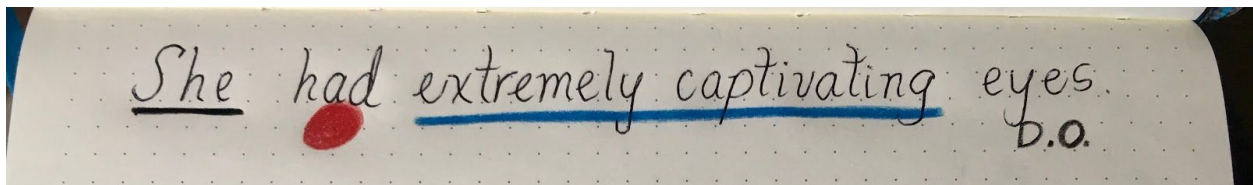 She had extremely captivating eyes.
D.O.